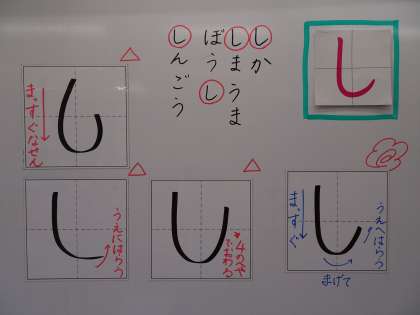 しか
しまうま
ぼうし
しんごう
し
まっすぐなせん
し
うえにはらう
し
4のへや
でおわる
し
まっすぐ
まげて
うえへはらう
し